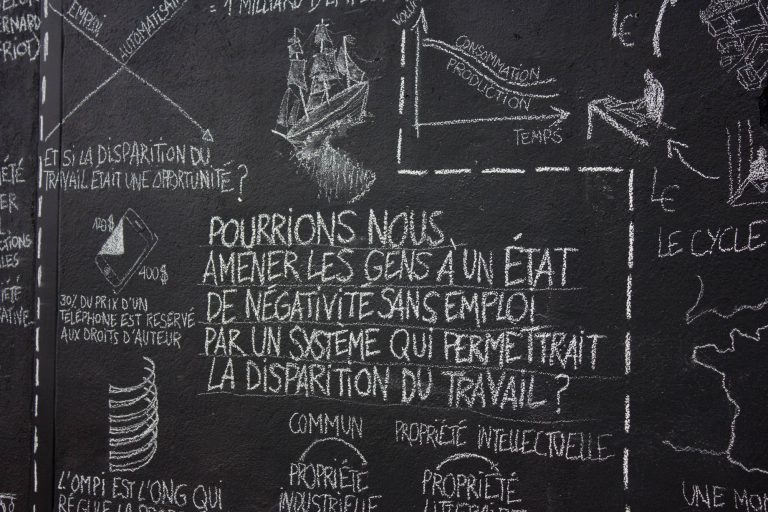 ERNARD
FRIOT)
EMPLOI
= 1 MILLIARD
CONSOMMATION
PRODUCTION
TEMPS
LE
ET SI LA DISPARITION DU
TRAVAIL ÉTAIT UNE OPPORTUNITÉ ?
120$
400$
30% DU PRIX D'UN
TÉLÉPHONE EST RÉSERVÉ
AUX DROITS D'AUTEUR
POURRIONS NOUS
AMENER LES GENS À UN ÉTAT
DE NÉGATIVITÉ SANS EMPLOI
PAR UN SYSTÈME QUI PERMETTRAIT
LA DISPARITION DU TRAVAIL ?
LE
LE CYCLE
COMMUN
PROPRIÉTÉ INTELLECTUELLE
PROPRIÉTÉ
INDUSTRIELLE
PROPRIÉTÉ
L'OMPI EST L'ONG QUI
RÉGULE LA
UNE